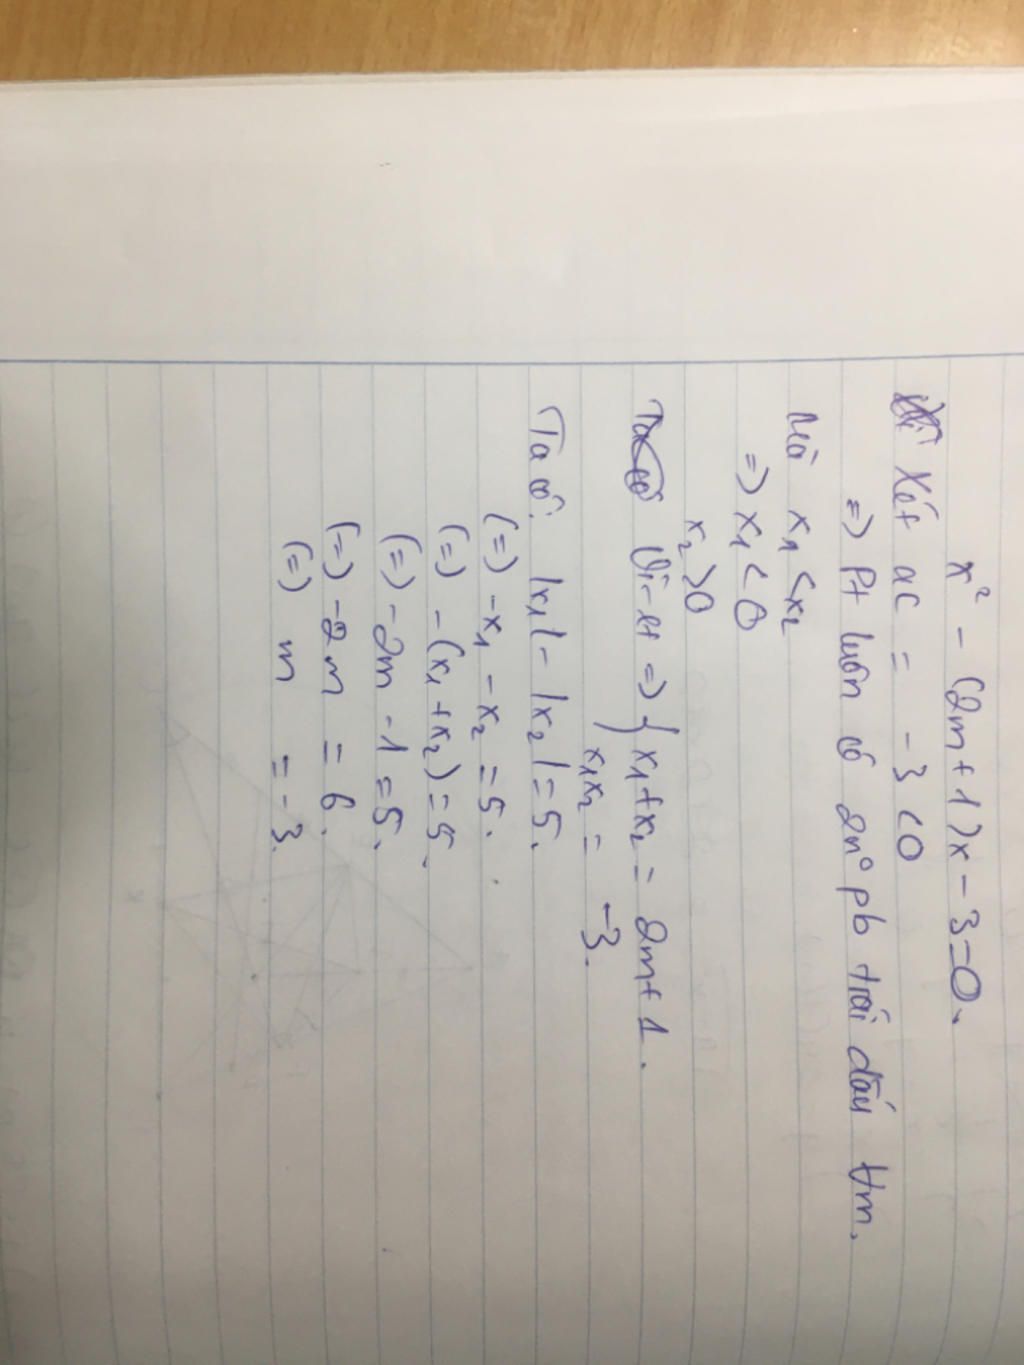 x² - (2m+1)x - 3 = 0.
Xét ac = -3 < 0
=> Pt luôn có 2 n⁰ pb trái dấu ∀m.
Mà x₁ < x₂
=> x₁ < 0
x₂ > 0
Vi-et => { x₁ + x₂ = 2m + 1.
x₁x₂ = -3.
Ta có: |x₁| - |x₂| = 5.
(=) -x₁ - x₂ = 5.
(=) -(x₁ + x₂) = 5.
(=) -2m - 1 = 5.
(=) -2m = 6.
(=) m = -3.